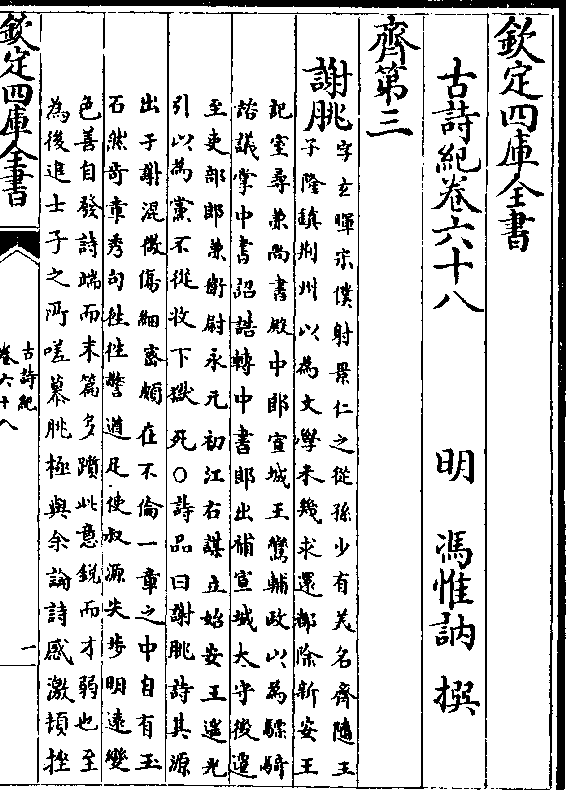 欽定四庫全書
古詩紀卷六十八
明 馮惟訥 撰
齊第三
謝朓
字玄暉宋僕射景仁之從孫少有美名齊隨王
子隆鎮荆州以為文學未幾求還都除新安王
記室尋兼尚書殿中郎宣城王鸞輔政以為驃騎
諮議掌中書詔誥轉中書郎出補宣城太守後遷
至吏部郎兼衛尉永元初江右謀立始安王遥光
引以為黨不從收下獄死○詩品曰謝朓詩其源
出于謝混微傷細密頗在不倫一章之中自有玉
石然奇章秀句往往警遒足使叔源失步明遠變
色善自發詩端而末篇多躓此意銳而才弱也至
為後進士子之所嗟慕朓極與余論詩感激頓挫
欽定四庫全書
古詩紀
卷六十八
一